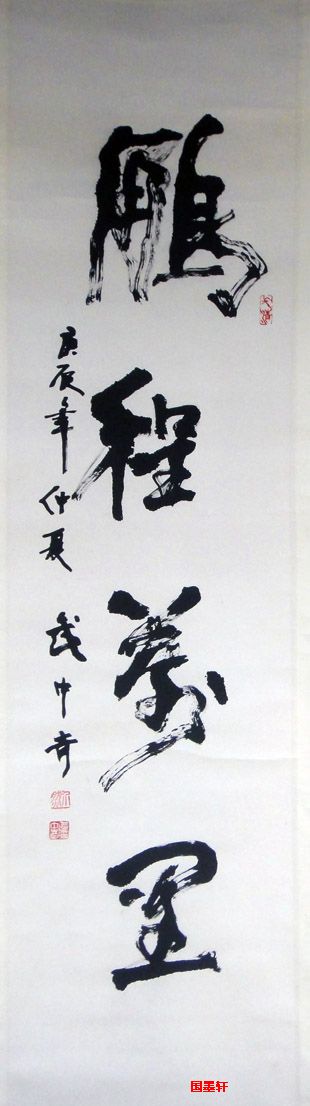 鵬程萬里
庚辰年仲夏 武中奇
国墨轩